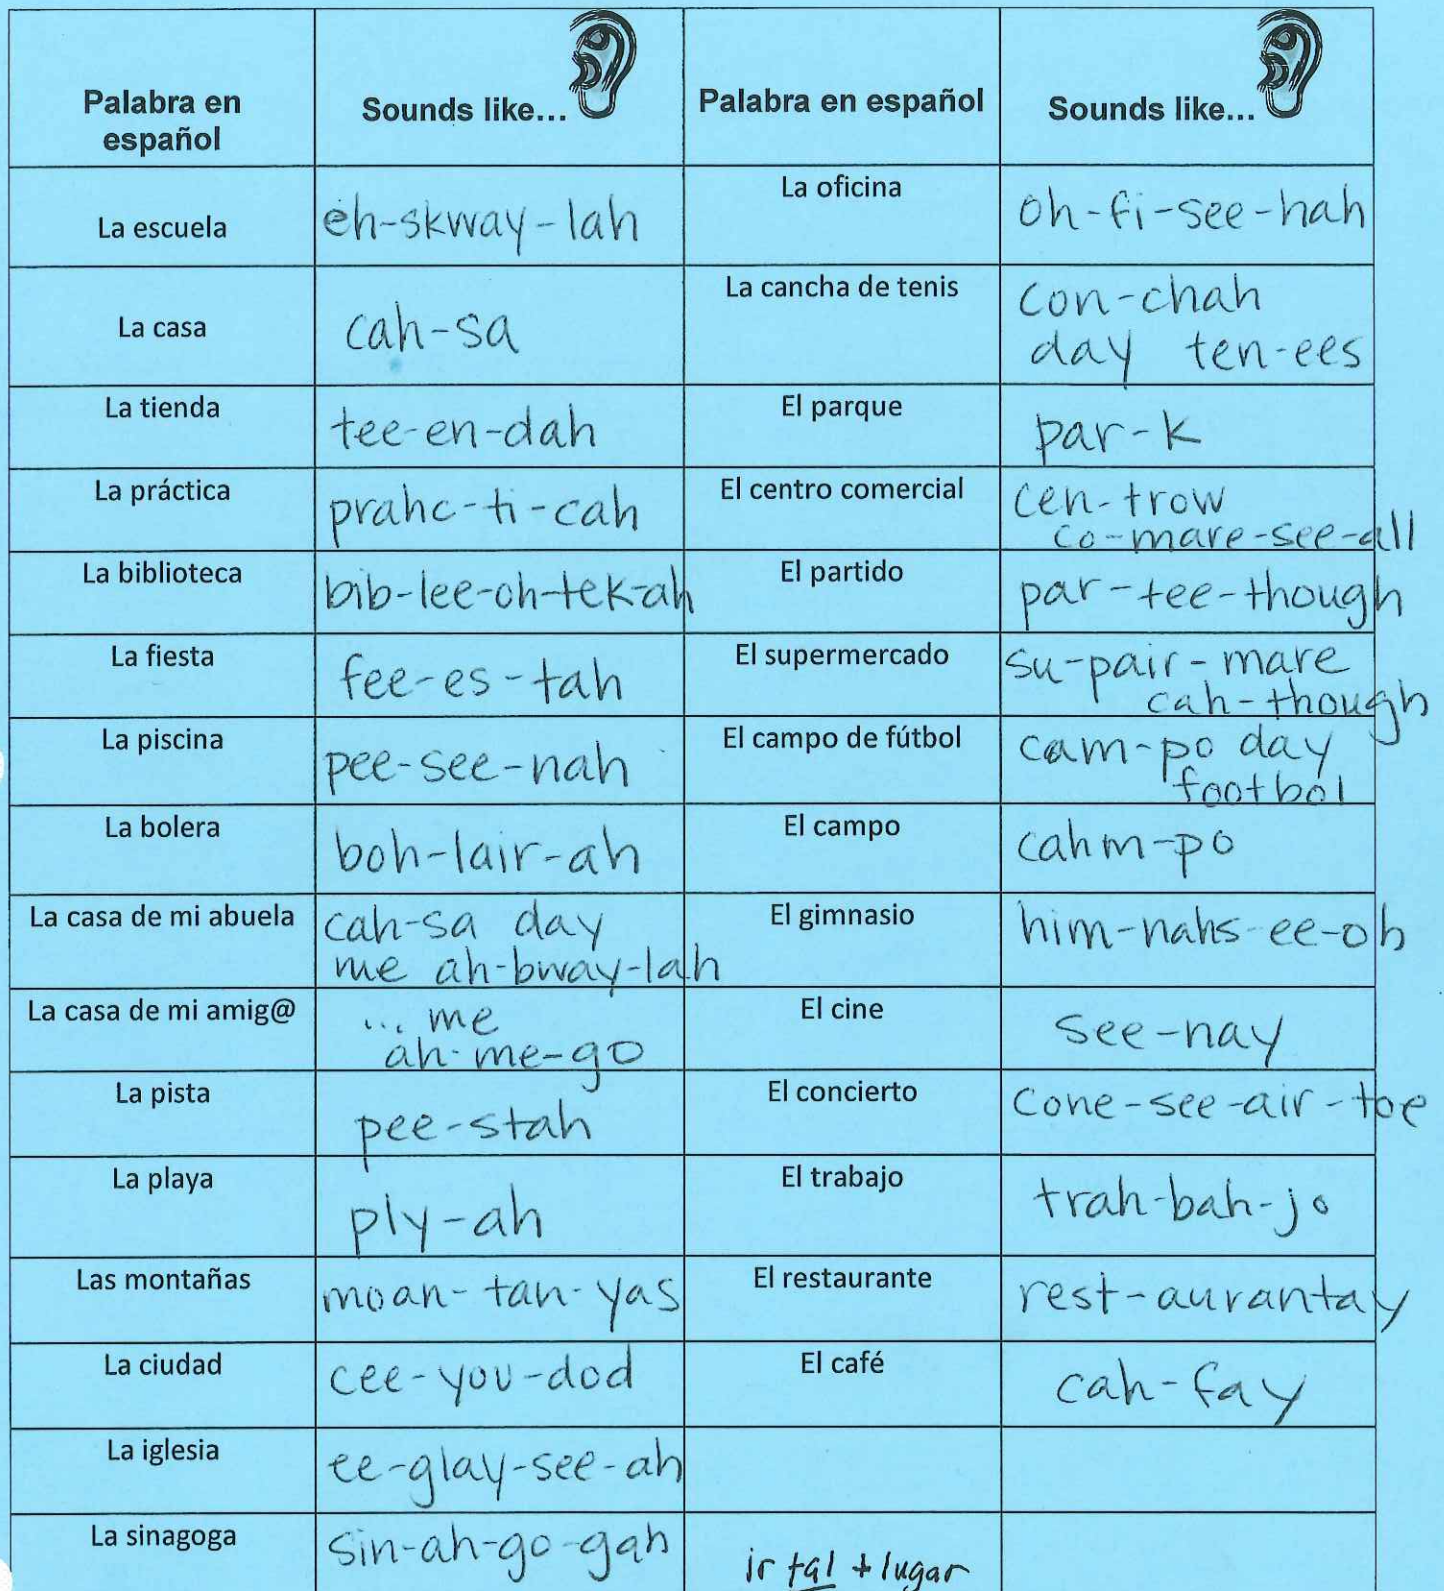 Palabra en
español
Sounds like...
Palabra en español
Sounds like...
La escuela
eh-skway-lah
La oficina
oh-fi-see-hah
La casa
cah-sa
La cancha de tenis
con-chah
day ten-ees
La tienda
tee-en-dah
El parque
par-k
La práctica
prahc-ti-cah
El centro comercial
cen-trow
co-mare-see-all
La biblioteca
bib-lee-oh-tek-ah
El partido
par-tee-though
La fiesta
fee-es-tah
El supermercado
su-pair-mare
cah-though
La piscina
pee-see-nah
El campo de fútbol
cam-po day
footbol
La bolera
boh-lair-ah
El campo
cahm-po
La casa de mi abuela
cah-sa day
me ah-bway-lah
El gimnasio
him-nahs-ee-oh
La casa de mi amig@
... me
ah-me-go
El cine
see-nay
La pista
pee-stah
El concierto
cone-see-air-toe
La playa
ply-ah
El trabajo
trah-bah-jo
Las montañas
moan-tan-yas
El restaurante
rest-aurantay
La ciudad
cee-you-dod
El café
cah-fay
La iglesia
ee-glay-see-ah
La sinagoga
sin-ah-go-gah
ir +al + lugar